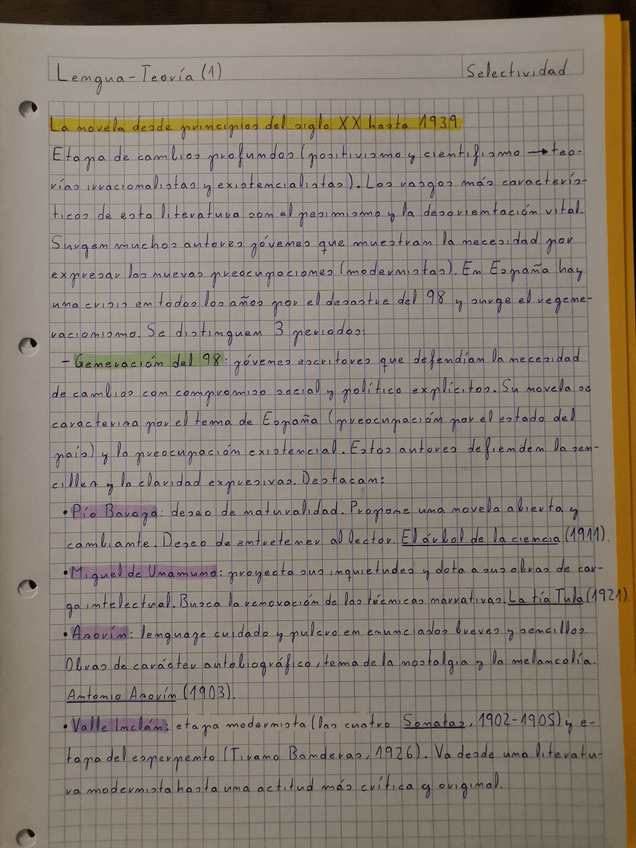 Lengua-Teoría (1)
Selectividad
La novela desde principios del siglo XX hasta 1939
Etapa de cambios profundos (positivismo y cientifismo → teo-
rías irracionalistas y existencialistas). Los rasgos más caracterís-
ticos de esta literatura son el pesimismo y la desorientación vital.
Surgen muchos autores jóvenes que muestran la necesidad por
expresar las nuevas preocupaciones (modernistas). En España hay
una crisis en todos los años por el desastre del 98 y surge el regene-
racionismo. Se distinguen 3 periodos:
- Generación del 98: jóvenes escritores que defendían la necesidad
de cambios con compromiso social y político explícitos. Su novela se
caracteriza por el tema de España (preocupación por el estado del
país) y la preocupación existencial. Estos autores defienden la sen-
cillez y la claridad expresivas. Destacan:
• Pío Baroja: deseo de naturalidad. Propone una novela abierta y
cambiante. Deseo de entretener al lector. El árbol de la ciencia (1911).
• Miguel de Unamuno: proyecta sus inquietudes y dota a sus obras de car-
ga intelectual. Busca la renovación de las técnicas narrativas. La tía Tula (1921)
• Azorín: lenguage cuidado y pulcro en enunciados breves y sencillos.
Obras de carácter autobiográfico, tema de la nostalgia y la melancolía.
Antonio Azorín (1903).
• Valle Inclán: etapa modernista (las cuatro Sonatas, 1902-1905) y e-
tapa del esperpento (Tirano Banderas, 1926). Va desde una literatu-
ra modernista hasta una actitud más crítica y original.